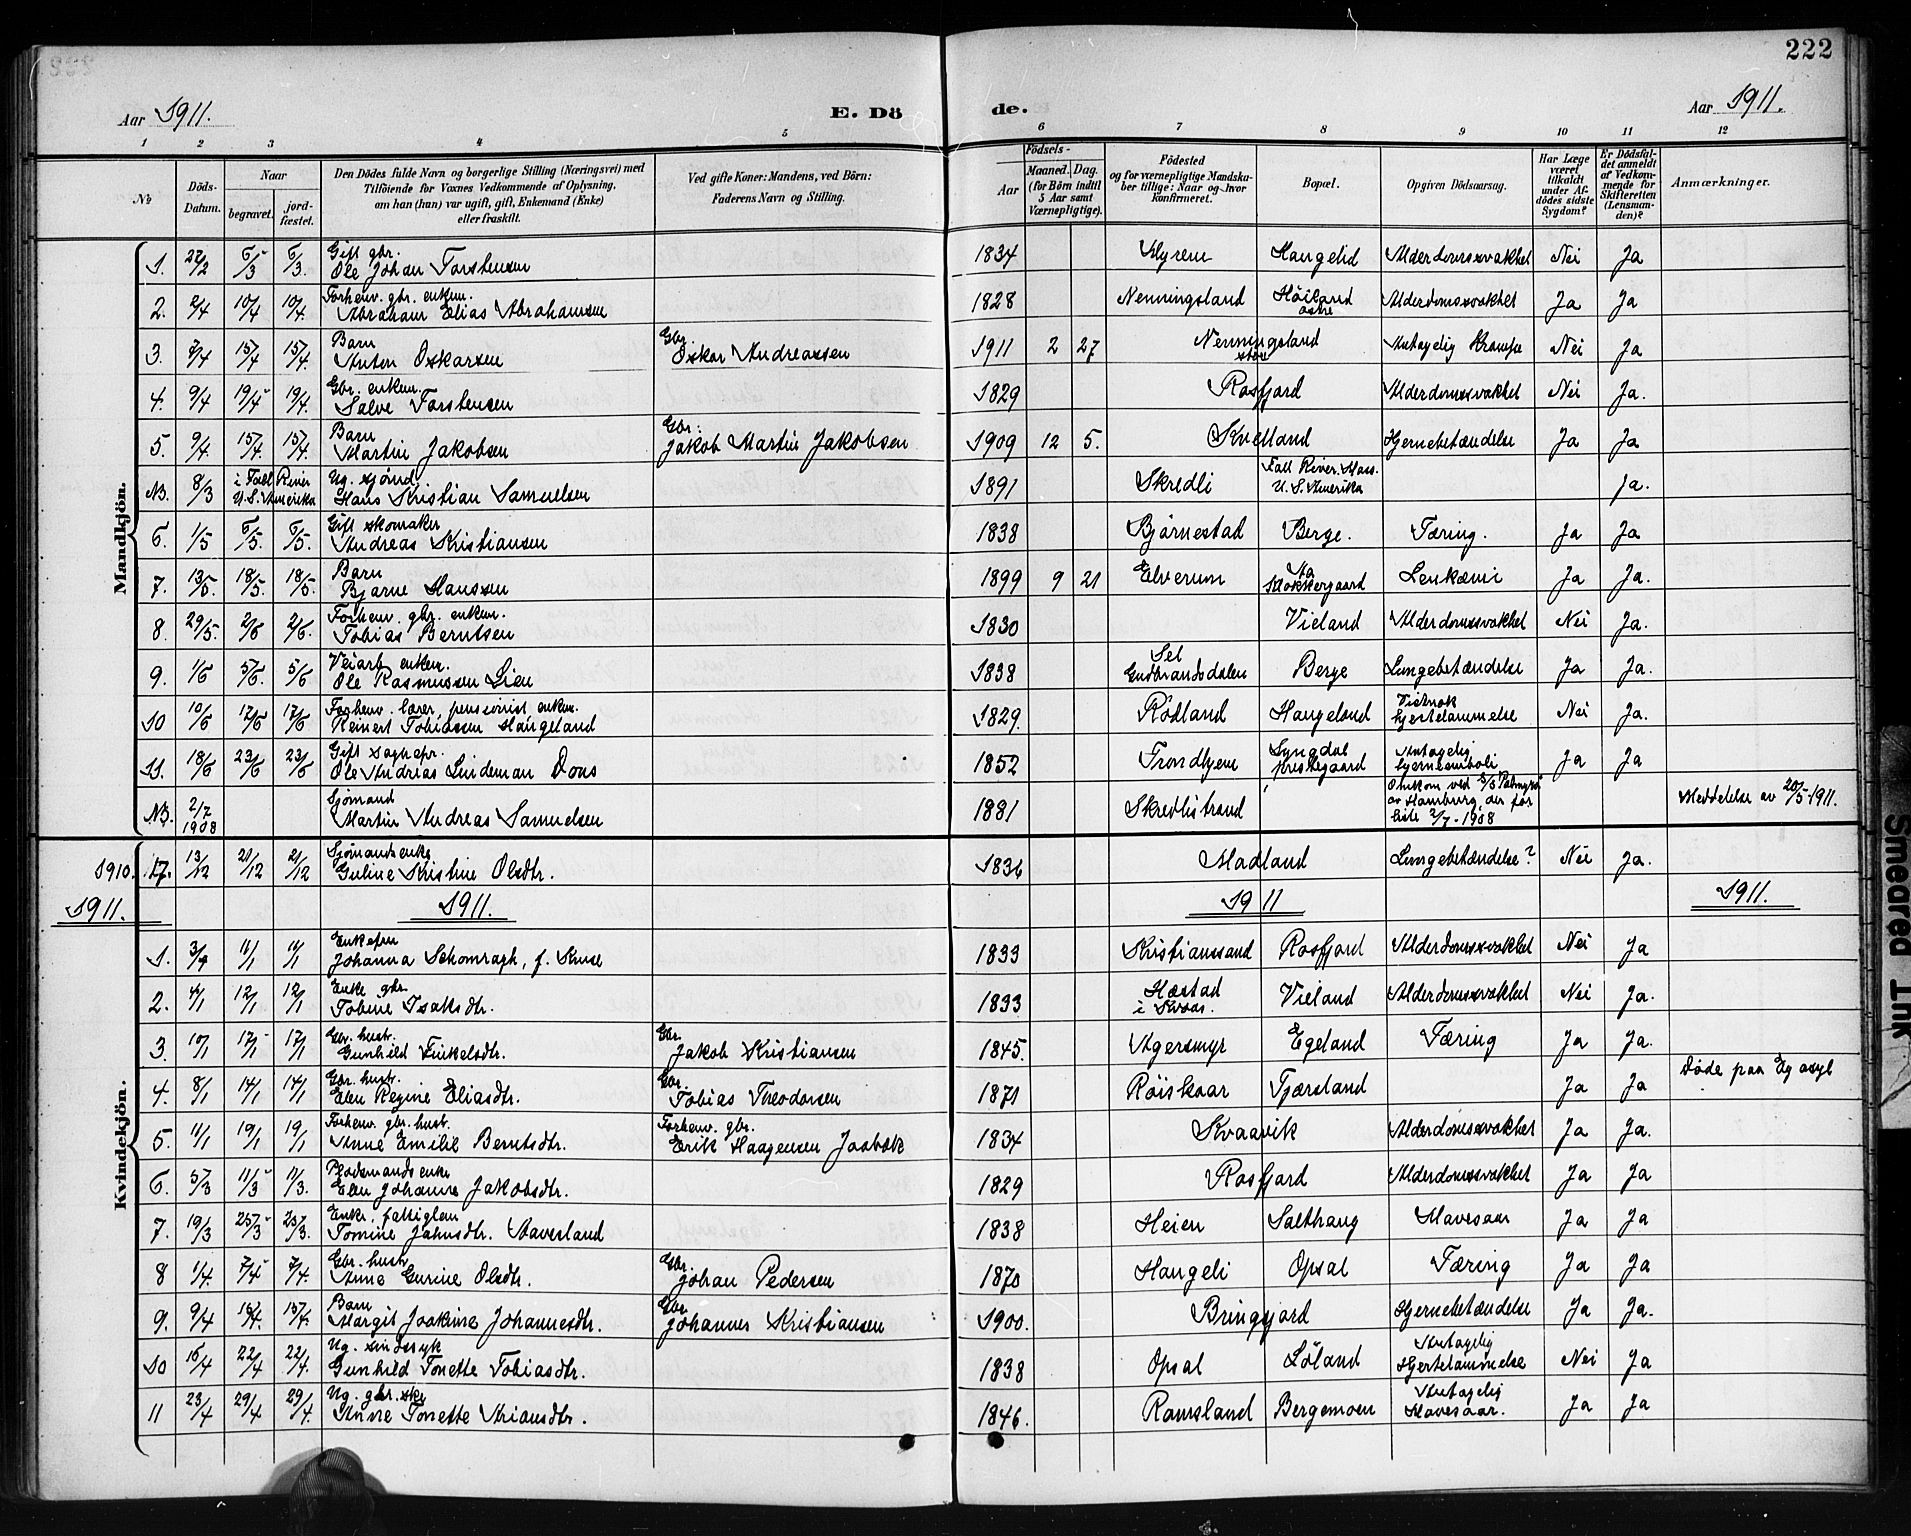 222
Aar 1911.
E. Døde.
Aar 1911.
1 2 3 4 5 6 7 8 9 10 11 12
No
Døds-Datum.
Naar
begravet.
jordfæstet.
Den Dødes fulde Navn og borgerlige Stilling (Næringsvei) med
Tilføiende for Voxnes Vedkommende af Oplysning,
om han (hun) var ugift, gift, Enkemand (Enke)
eller fraskilt.
Ved gifte Koner: Mandens, ved Børn:
Faderens Navn og Stilling.
Fødsels-
Aar
Maaned. Dag.
(for Børn indtil
5 Aar samt
Værnepligtige).
Fødested
og for værnepligtige Mandskaber tillige: Naar og hvor
konfirmeret.
Bopæl.
Opgiven Dødsaarsag.
Har Læge
været
tilkaldt
under Afdødes sidste
Sygdom?
Er Dødsfaldet anmeldt
af Vedkommende for
Skifteretten
(Lensmanden)?
Anmærkninger.
Mandkjøn.
1. 22/2 6/3 6/3. Gift gbr. Ole Johan Torstensen 1834 Myren Haugelid Alderdomssvakhet Nei Ja
2. 2/4 10/4 10/4. Forhenv. gbr. enkem. Abraham Elias Abrahamsen 1828 Nenningsland Høiland østre Alderdomssvakhet Ja Ja
3. 7/4 15/4 15/4. Barn Anton Oskarsen Gbr. Oskar Andreassen 1911 2 27 Nenningsland Antagelig Krampe Nei Ja
4. 9/4 19/4 19/4. Gbr. enkem. Salve Torstensen 1829 Rosfjord Alderdomssvakhet Nei Ja.
5. 9/4 15/4. 15/4. Barn Martin Jakobsen Gbr: Jakob Martin Jakobsen 1909 12 5. Kvelland Hjernebetændelse Ja Ja
NB. 8/3 i Fall River U.S. Amerika Ug. sjømd. Hans Kristian Samuelsen 1891 Skredli Fall River. Mass. U.S. Amerika Ja.
6. 1/5 6/5. 6/5. Gift skomaker Andreas Kristiansen 1838 Bjørnestad Berge. Tæring. Ja Ja
7. 13/5 18/5. 18/5. Barn Bjarne Hanssen 1899 9 21 Elverum Aa Klokkergaard Leukæmi Ja Ja.
8. 29/5. 2/6 2/6. Forhenv. gbr. enkem. Tobias Berntsen 1830 Vieland Alderdomssvakhet Nei Ja.
9. 1/6 5/6. 5/6 Veiarb. enkem. Ole Rasmussen Lien 1838 Sel Gudbrandsdalen Berge Lungebetændelse Ja Ja.
10 10/6 17/6 17/6 Forhenv. lærer, pensionist enkem. Reinert Tobiassen Haugeland 1829. Rødland Haugeland Vistnok hjertelammelse Nei Ja.
11. 18/6 23/6 23/6 Gift sognepr. Ole Andreas Lindeman Dons 1852 Trondhjem Lyngdal prestegaard Antagelig hjerneemboli Ja Ja
NB. 2/7 1908 Sjømand Martin Andreas Samuelsen 1881 Skredlistrand Omkom ved S/S Palmyra av Hamburg, der forliste 2/7-1908 Meddelelse av 20/5-1911.
Kvindekjøn.
1910. 17. 13/12 21/12 21/12 Sjømandsenke Guline Kristine Olsdtr. 1836 Madland Lungebetændelse? Nei Ja.
1911. 1911. 1911 1911.
1. 3/1 11/1 11/1 Enkefru Johanna Schomragh, f. Kruse 1833 Kristianssand Rosfjord Alderdomssvakhet Nei Ja
2. 4/1 12/1 12/1 Enke gbr. Tobine Isaksdr. 1833 Hæstad i Kvaas. Vieland Alderdomssvakhet Nei Ja.
3. 10/1 17/1 17/1 Gbr. hustr. Gunhild Tinkelsdtr. Gbr. Jakob Kristiansen 1845. Agersmyr Egeland Tæring Ja Ja.
4. 8/1 14/1 14/1 Gbr. hustr. Elen Regine Eliasdtr. Gbr. Tobias Theodorsen 1871 Røiskaar Tjærsland Ja Ja Døde paa Eg asyl
5. 11/1 19/1 19/1 Forhenv. gbr. hust. Anne Emilie Berntsdtr. Forhenv. gbr. Erik Haagensen Jaabæk 1834 Kvaavik Alderdomssvakhet Ja Ja.
6. 5/3 11/3 11/3. Plodsmandsenke Elen Johanne Jakobsdtr. 1829 Rosfjord Alderdomssvakhet Ja Ja
7. 19/3 25/3 25/3. Enke, fattiglem Tomine Jahnsdtr. Stavesland 1838 Heien Salthaug Mavesaar Ja Ja
8 1/4. 7/4 7/4. Gbr. hustr. Anne Gurine Olsdtr. Gbr. Johan Pedersen 1870 Haugeli Opsal Tæring Ja Ja
9. 9/4 15/4. 15/4. Barn Margit Joakine Johannesdtr. Gbr. Johannes Kristiansen 1900. Bringsjord Hjernebetændelse Ja Ja.
10 15/4 22/4 22/4. Ug. sindssyk Gunhild Tonette Tobiasdtr. 1838 Opsal Løland Antagelig Hjertelammelse Nei Ja
11 23/4 29/4 29/4. Ug. gbr. Anne Tonette Ariansdtr. 1846. Ramsland Bergemoen Antagelig Mavesaar. Ja Ja
Smeared Ink